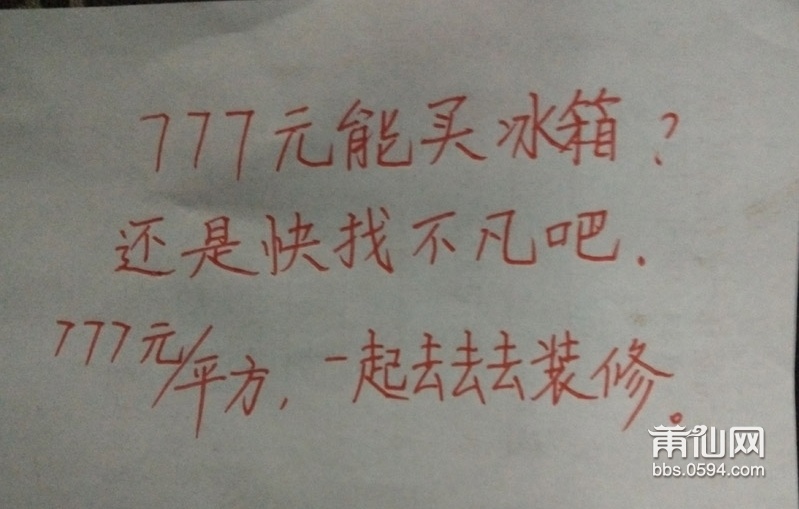 777元能买冰箱?
还是快找不凡吧.
777元/平方,一起去去去装修。
莆仙网
bbs.0594.com